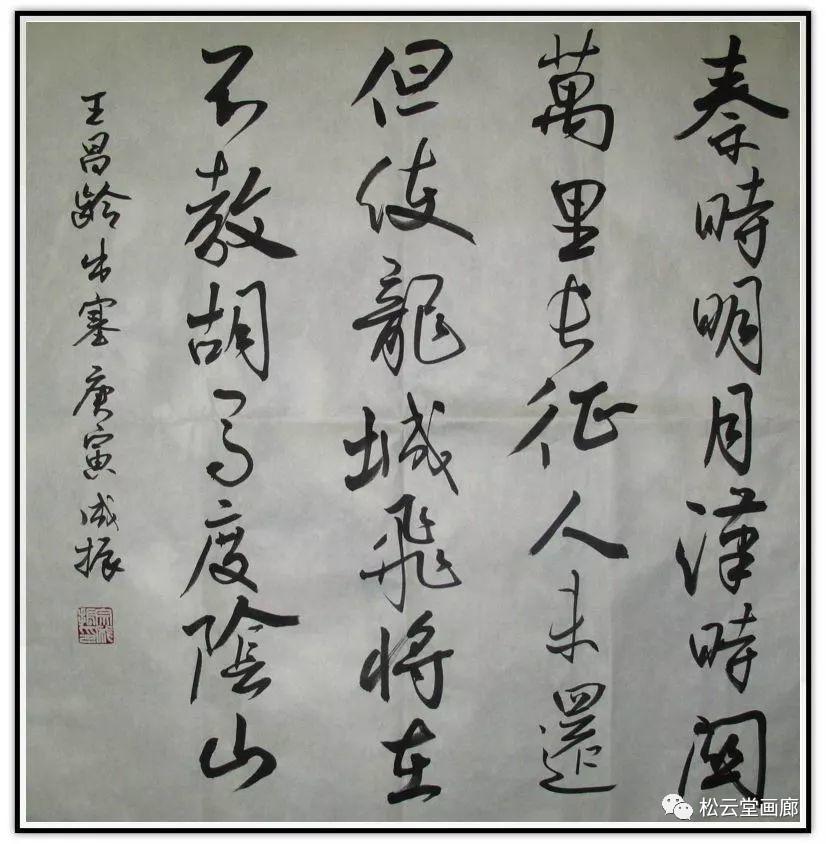 秦時明月漢時關
萬里長征人未還
但使龍城飛將在
不教胡馬度陰山
王昌齡出塞庚寅成振
松云堂画廊